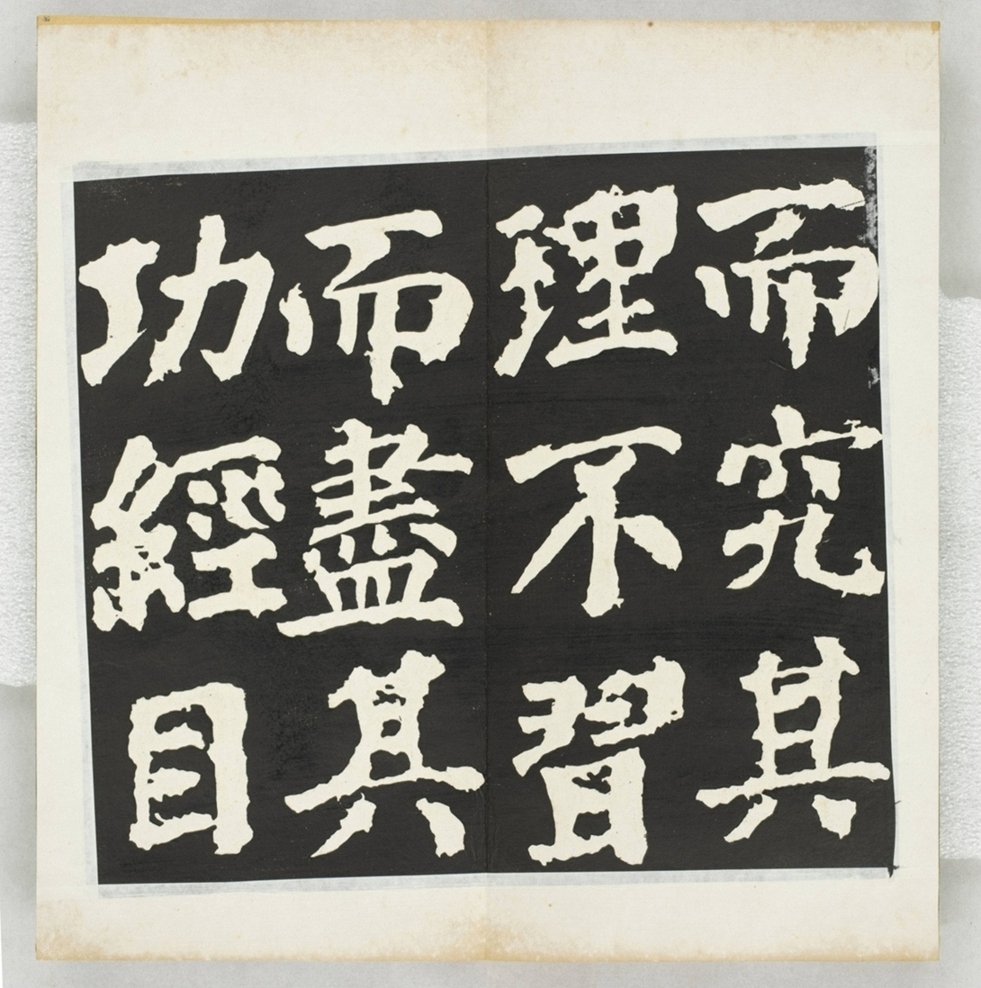 而究其
理不習
而盡其
功經目